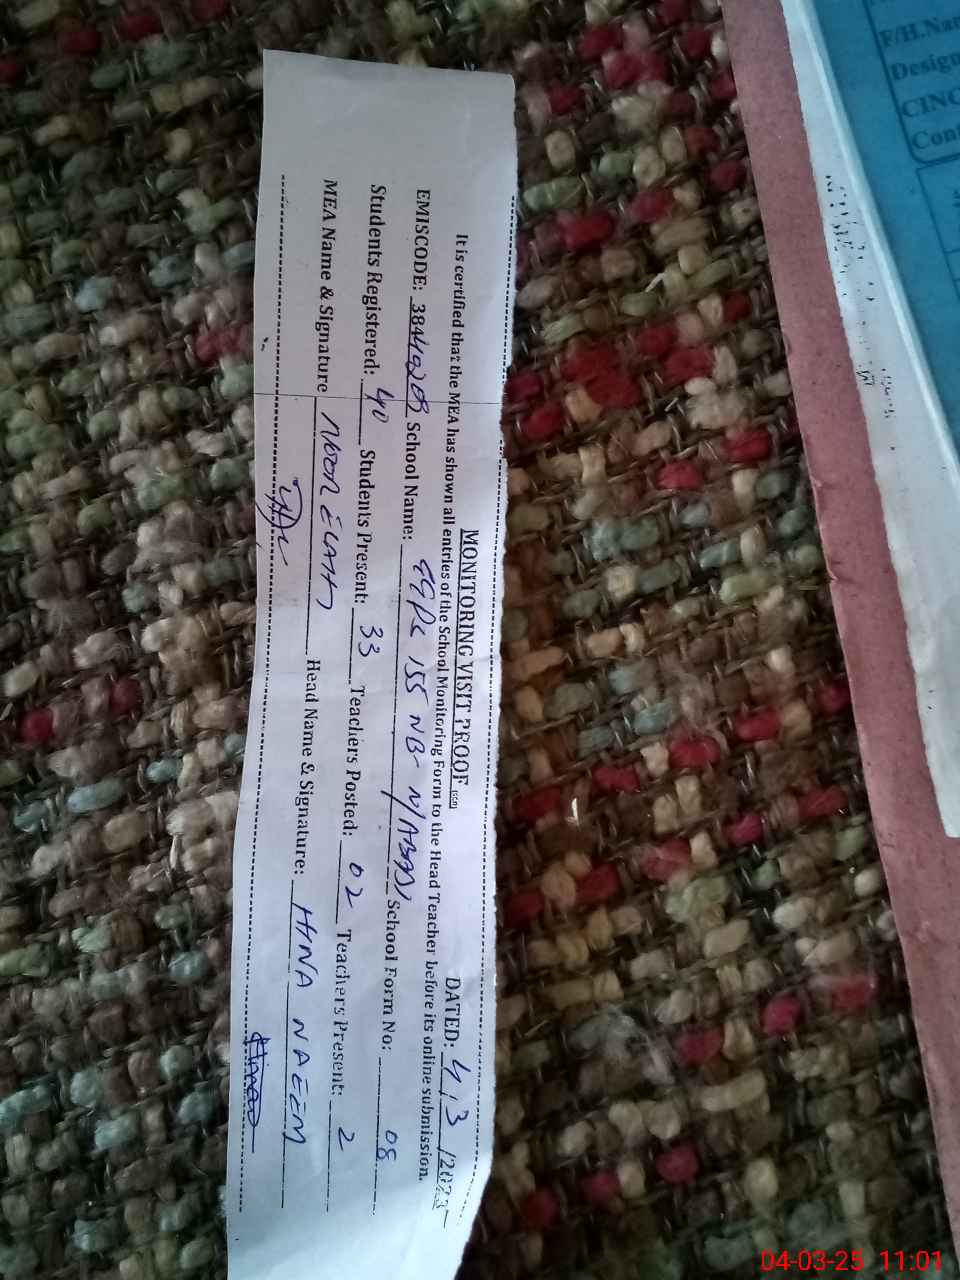 MONITORING VISIT PROOF DATED: 4/3/2023
It is certified that the MEA has shown all entries of the School Monitoring Form to the Head Teacher before its online submission.
EMISCODE: School Name: 155 NB School Form No: 08
Students Registered: 40 Students Present: 33 Teachers Posted: 02 Teachers Present: 2
MEA Name & Signature NOOR ELAHI Head Name & Signature: HINA NAEEM
F/H.Nam
Design
CINC
Cont
04-03-25 11:01